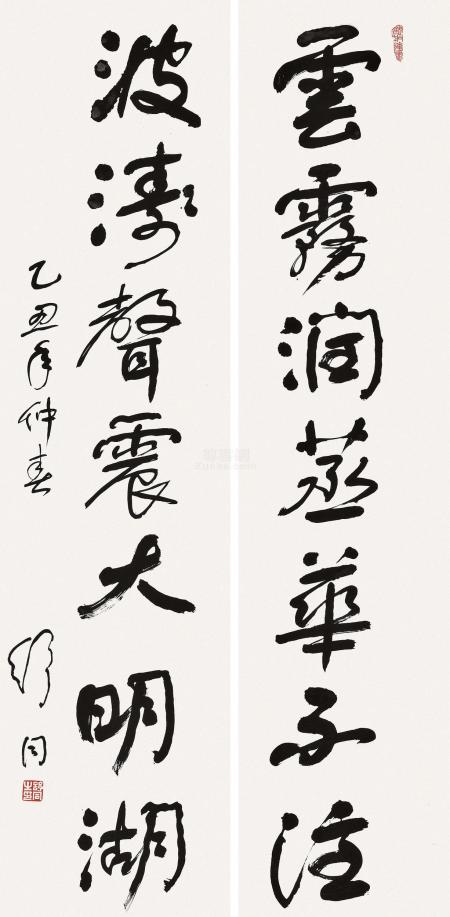 雲霧潤蒸華不注
波濤聲震大明湖
乙丑年仲春
舒同